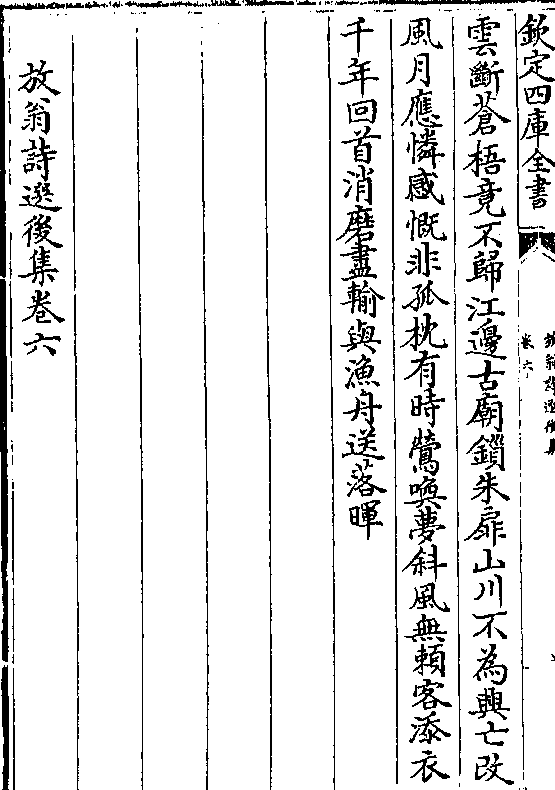 欽定四庫全書
卷六
雲斷蒼梧竟不歸江邊古廟鎖朱扉山川不為興亡改
風月應憐感慨非孤枕有時鶯喚夢斜風無賴客添衣
千年回首消磨盡輸與漁舟送落暉
放翁詩選後集卷六